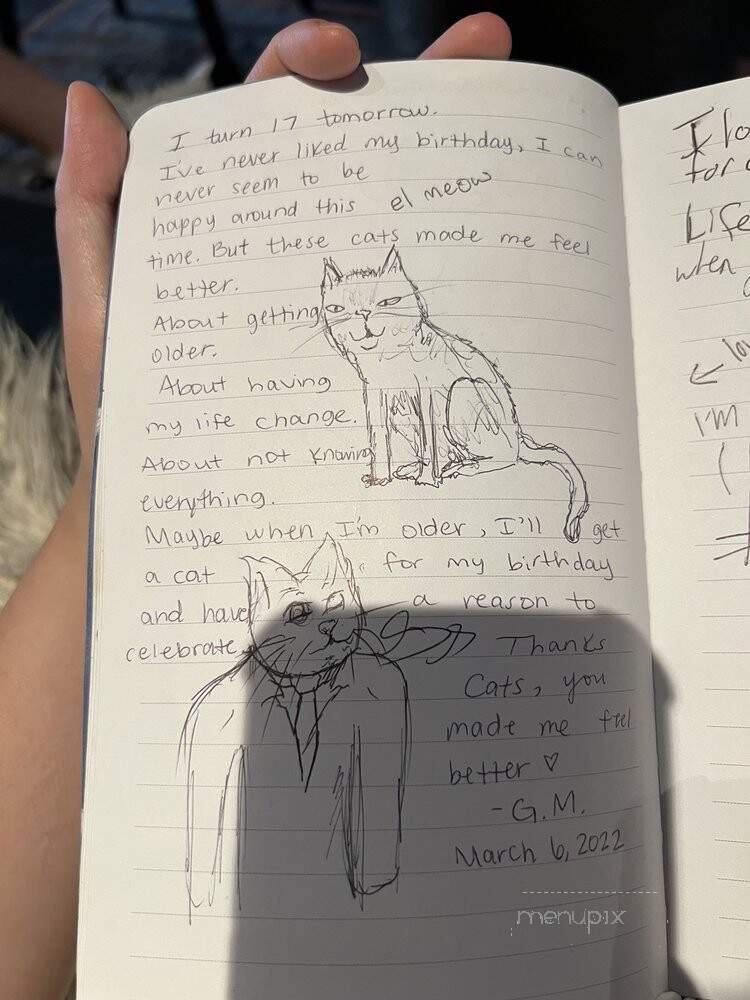 I turn 17 tomorrow.
I've never liked my birthday, I can
never seem to be
happy around this el meow
time. But these cats made me feel
better.
About getting
older.
About having
my life change.
About not knowing
everything.
Maybe when I'm older, I'll get
a cat for my birthday
and have a reason to
celebrate.
Thanks
Cats, you
made me feel
better ♡
- G.M.
March 6, 2022
for
Life
when
I'M
menupix